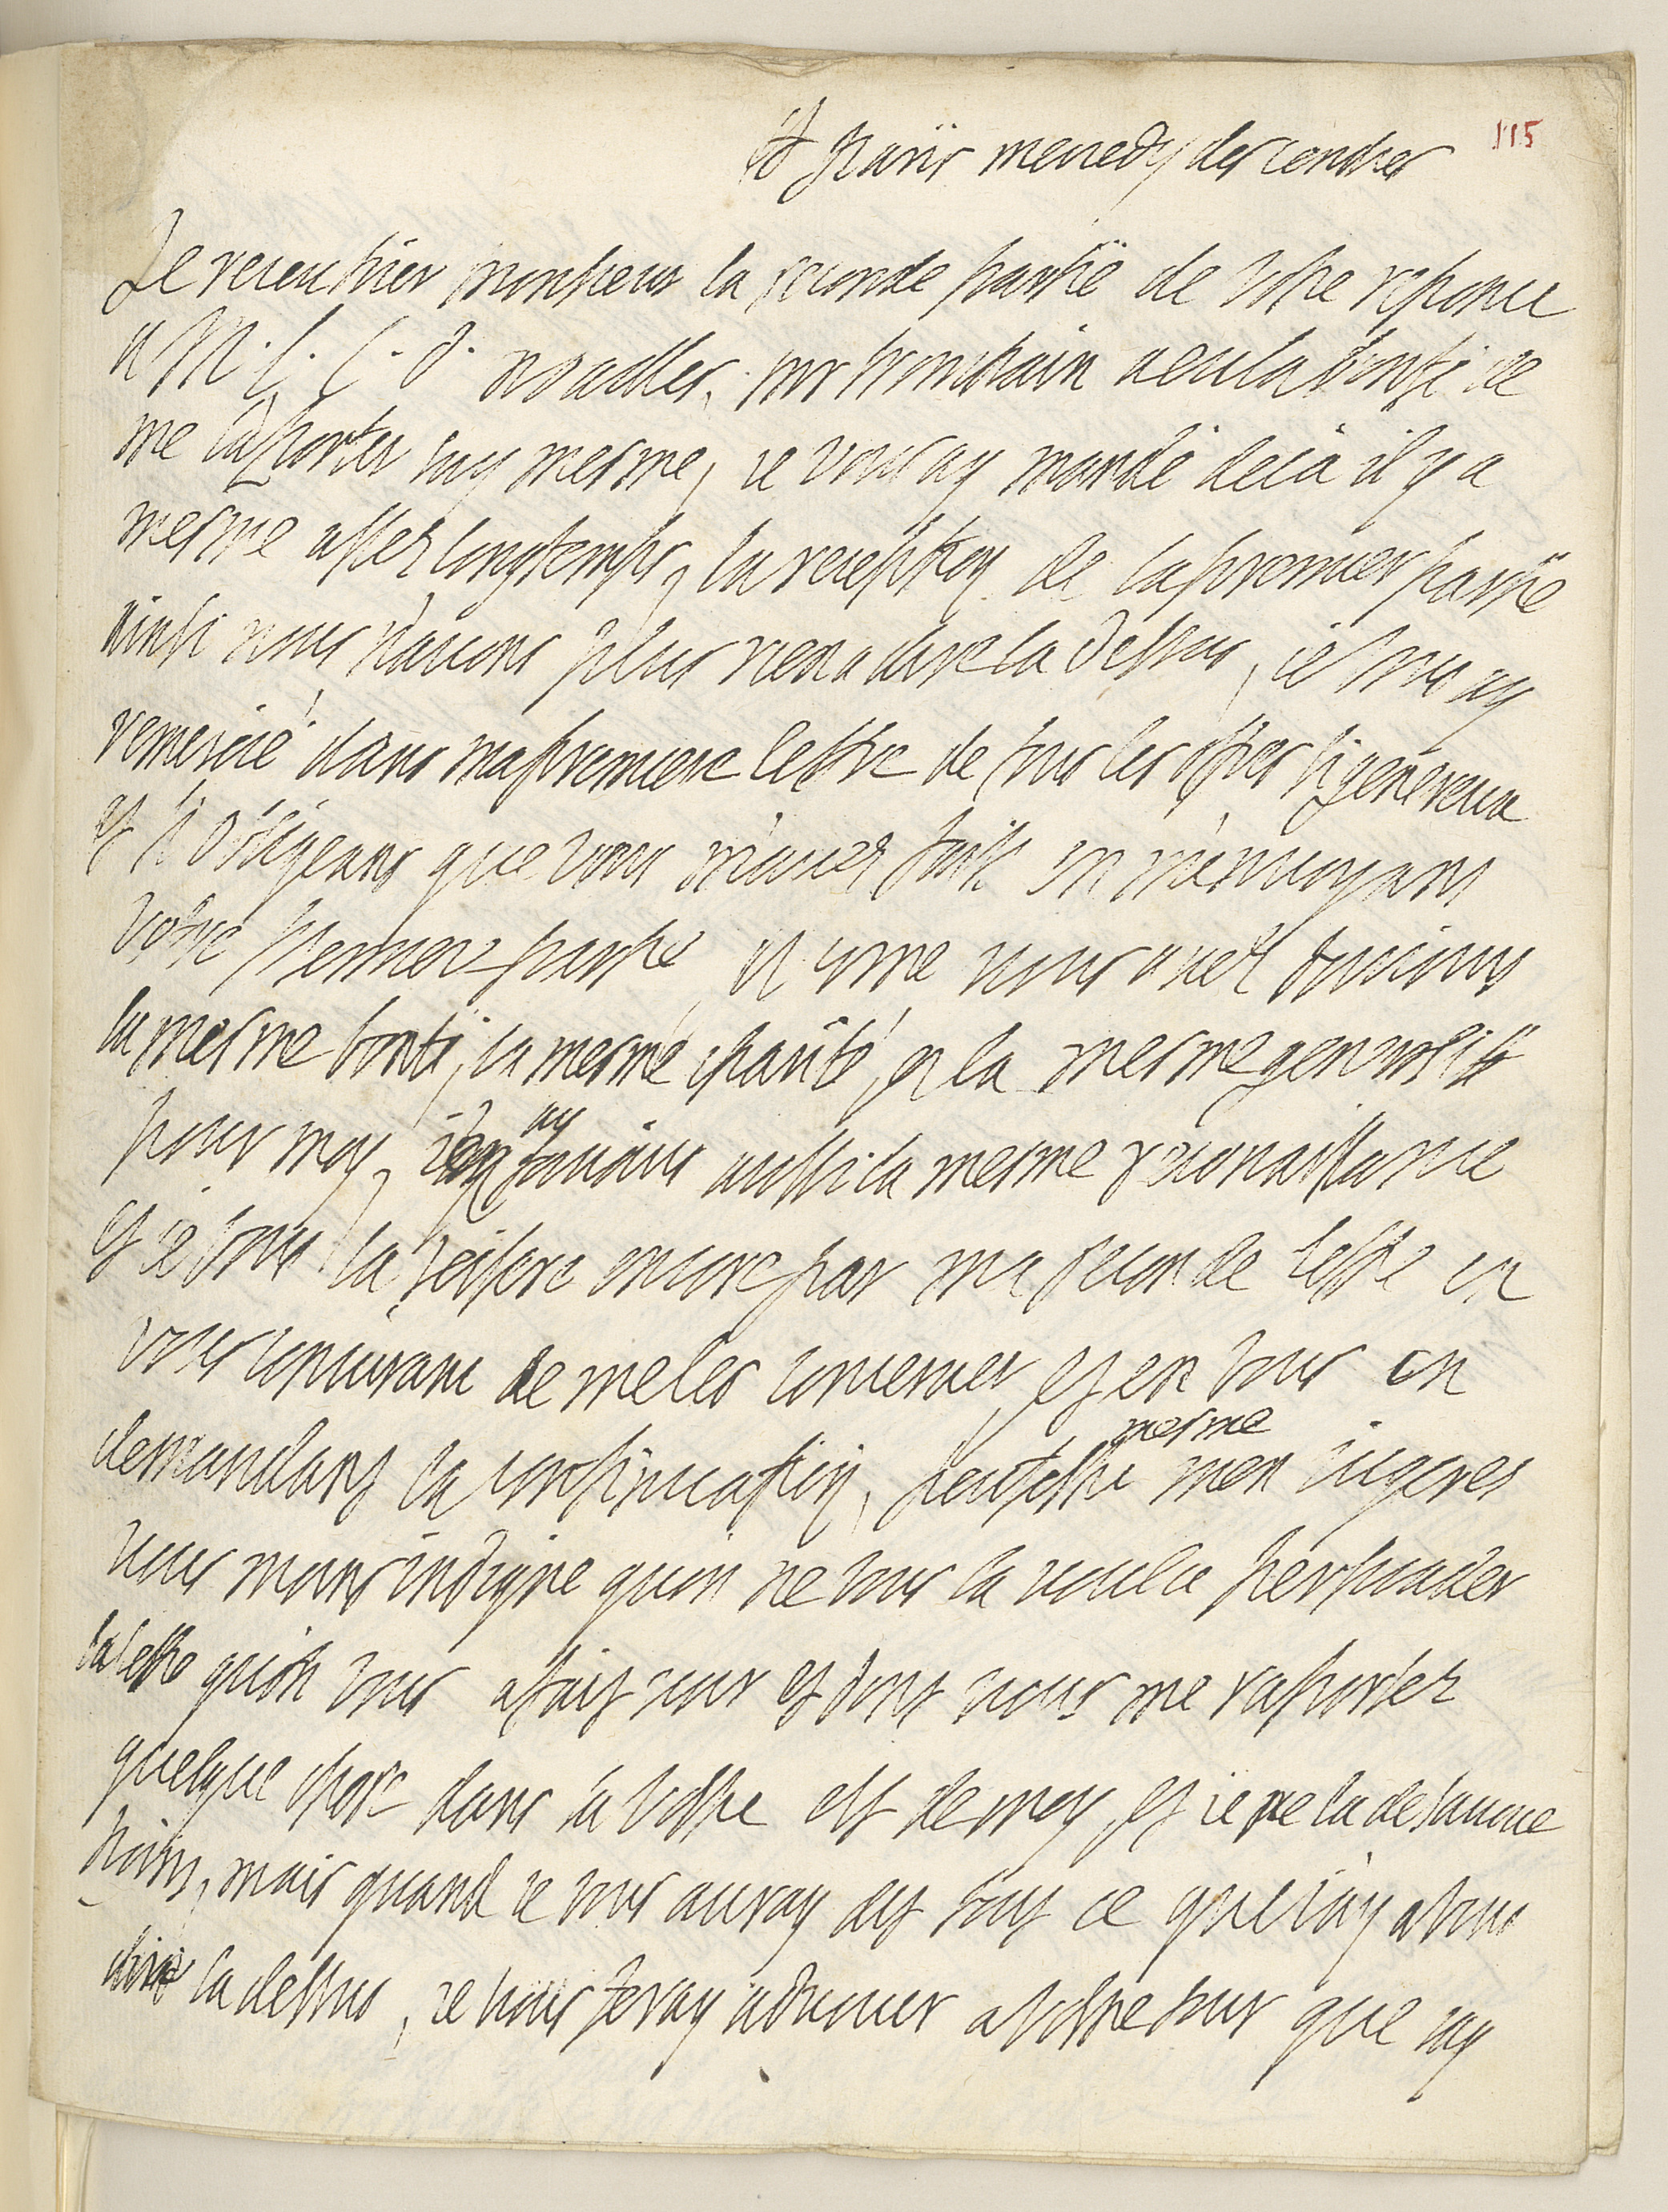 A Paris mercredy des cendres
115
Je receu hier monsieur la seconde partie de vostre reponce
a M. L. C. d. noailles, mr tronchain a eu la bonté de
me laporter luy mesme, ie vous ay mandé deia il y a
mesme assez longtemps, la reception de la premier partie
ainsi nous n'auons plus rien a dire la dessus, ie vous ay
remercié dans ma premiere lettre de tous les offres si genereux
et si obligeans que vous m'auez fait en m'enuoyant
vostre premiere partie, et comme vous auez tousiours
la mesme bonté, la mesme charité, et la mesme generosité
pour moy, i'en ay tousiours aussi la mesme reconnaissance
et ie vous la reitere encore par ma seconde lettre en
vous coniurant de me les conseruer, et en vous en
demandant la continuation, peutestre mesme m'en iugeres
vous moins indigne qu'on ne vous la voulu persuader
la lettre qu'on vous a fait voir et dont vous me raportez
quelque chose dans la vostre est de moy, et ie ne la desauoue
point, mais quand ie vous auray dit tout ce que i'ay a vous
dire la dessus, ie vous feray aduouer a vostre tour que iay